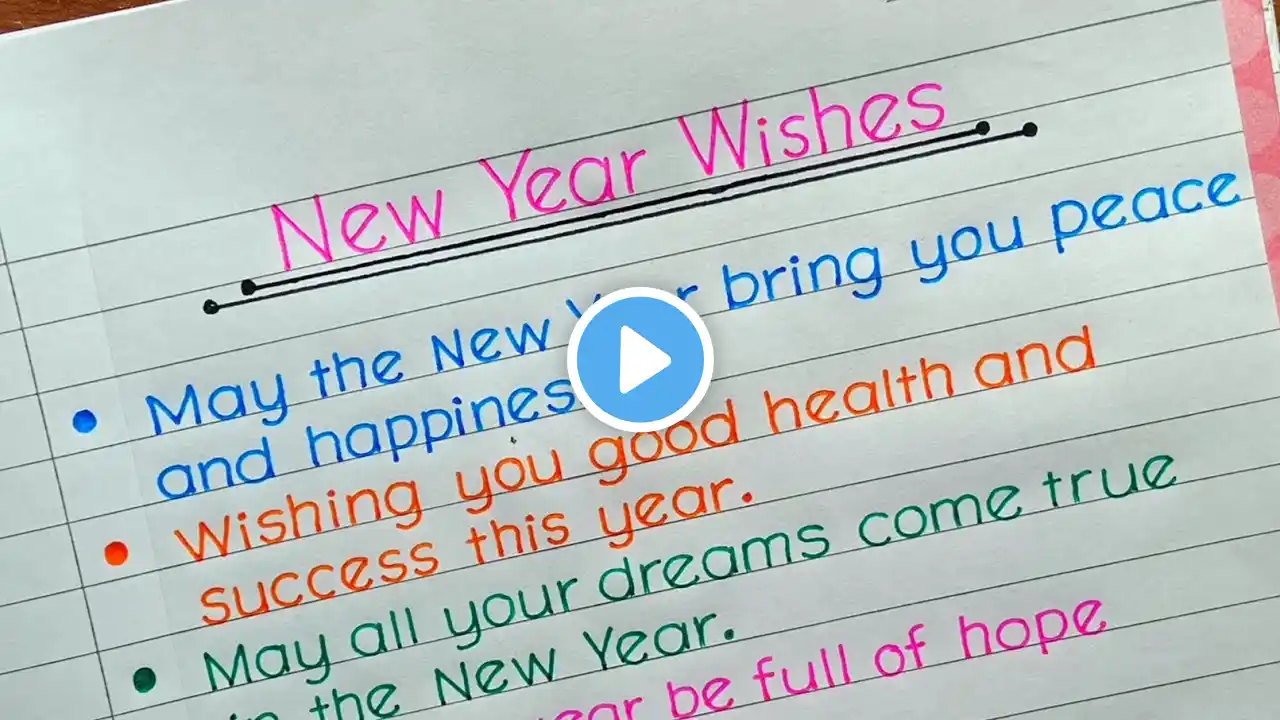 New Year Wishes
May the New bring you peace
and happines
Wishing you good health and
success this year.
May all your dreams come true
in the New Year.
be full of hope